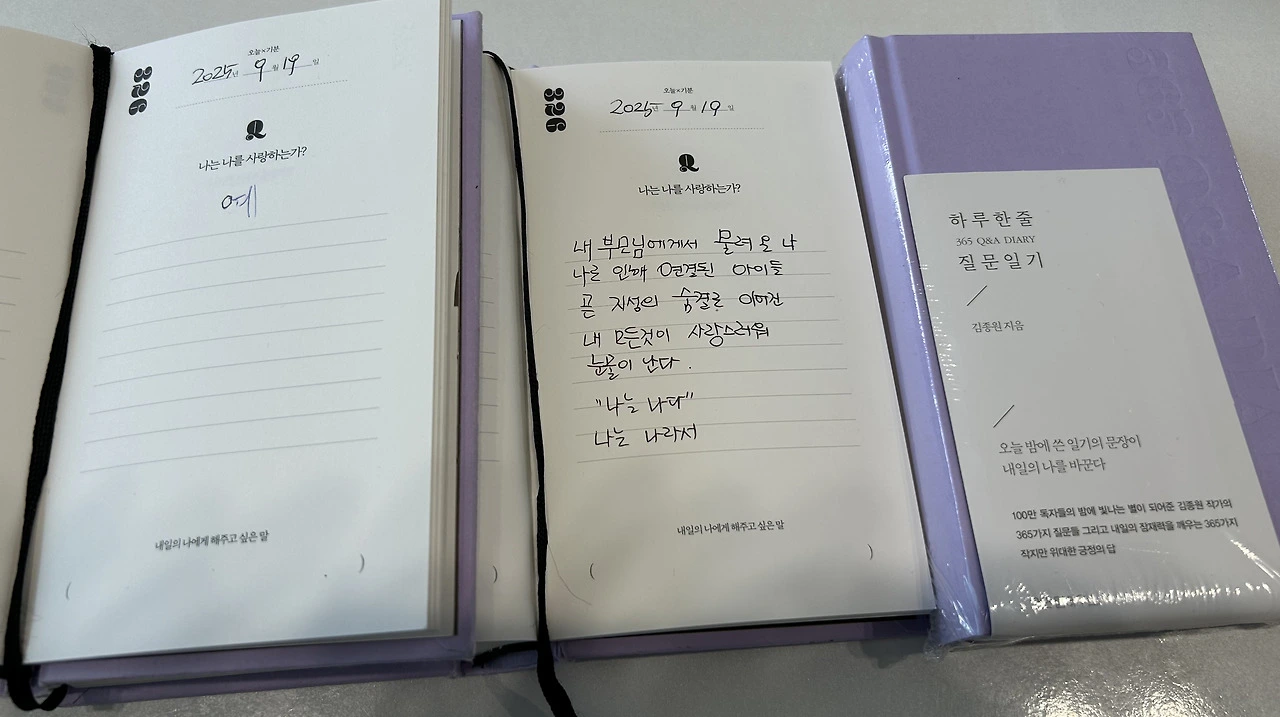 326
오늘×기분
2025년 9월 19일
Q
나는 나를 사랑하는가?
예
내일의 나에게 해주고 싶은 말
( )
)
326
오늘×기분
2025년 9월 19일
Q
나는 나를 사랑하는가?
내 부모님에게서 물려 온 나
나로 인해 연결된 아이들
곧 지성의 숨결로 이어진
내 모든것이 사랑스러워
눈물이 난다.
"나는 나다"
나는 나라서
내일의 나에게 해주고 싶은 말
( )
365 Q&A
하루 한 줄
365 Q&A DIARY
질문 일기
김종원 지음
오늘 밤에 쓴 일기의 문장이
내일의 나를 바꾼다
100만 독자들의 밤에 빛나는 별이 되어준 김종원 작가의
365가지 질문들 그리고 내일의 잠재력을 깨우는 365가지
작지만 위대한 긍정의 답